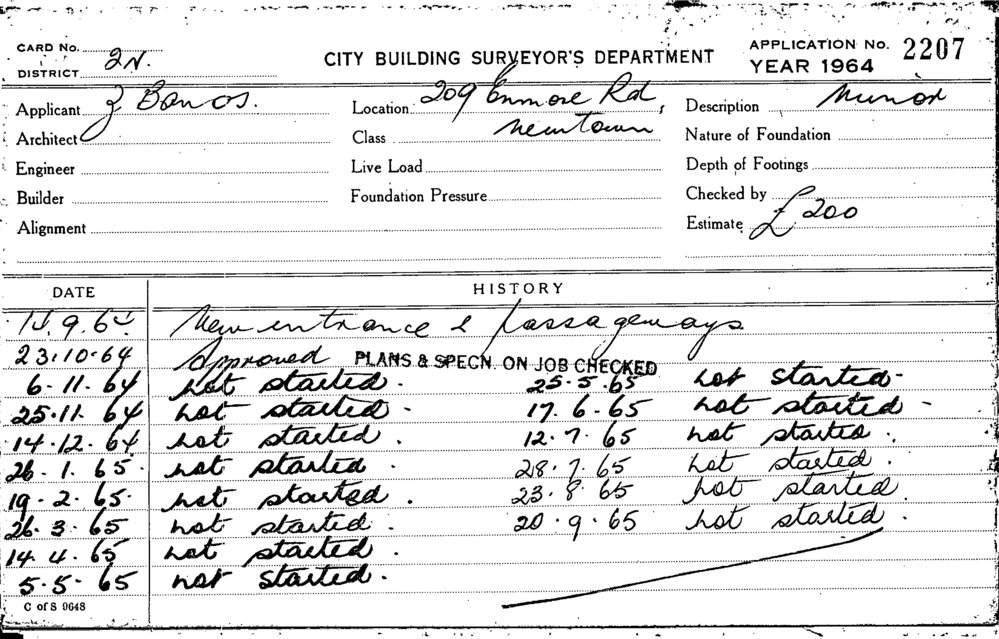 CARD No.
DISTRICT 2N.
CITY BUILDING SURVEYOR'S DEPARTMENT
APPLICATION No. 2207
YEAR 1964
Applicant Z Banos.
Location 209 Enmore Rd,
Description Minor
Architect
Class Newtown
Nature of Foundation
Engineer
Live Load
Depth of Footings
Builder
Foundation Pressure
Checked by
Alignment
Estimate £200
DATE
HISTORY
14.9.64 New entrance & passageways
23.10.64 Approved PLANS & SPECN. ON JOB CHECKED
6.11.64 Not started. 25.5.65 Not started-
25.11.64 not started - 17.6.65 not started -
14.12.64 not started. 12.7.65 not started.
26.1.65. not started. 28.7.65 not started.
19.2.65. not started. 23.8.65 not started.
26.3.65 not started. 20.9.65 not started.
14.4.65 not started.
5.5.65 not started.
C of S 9648